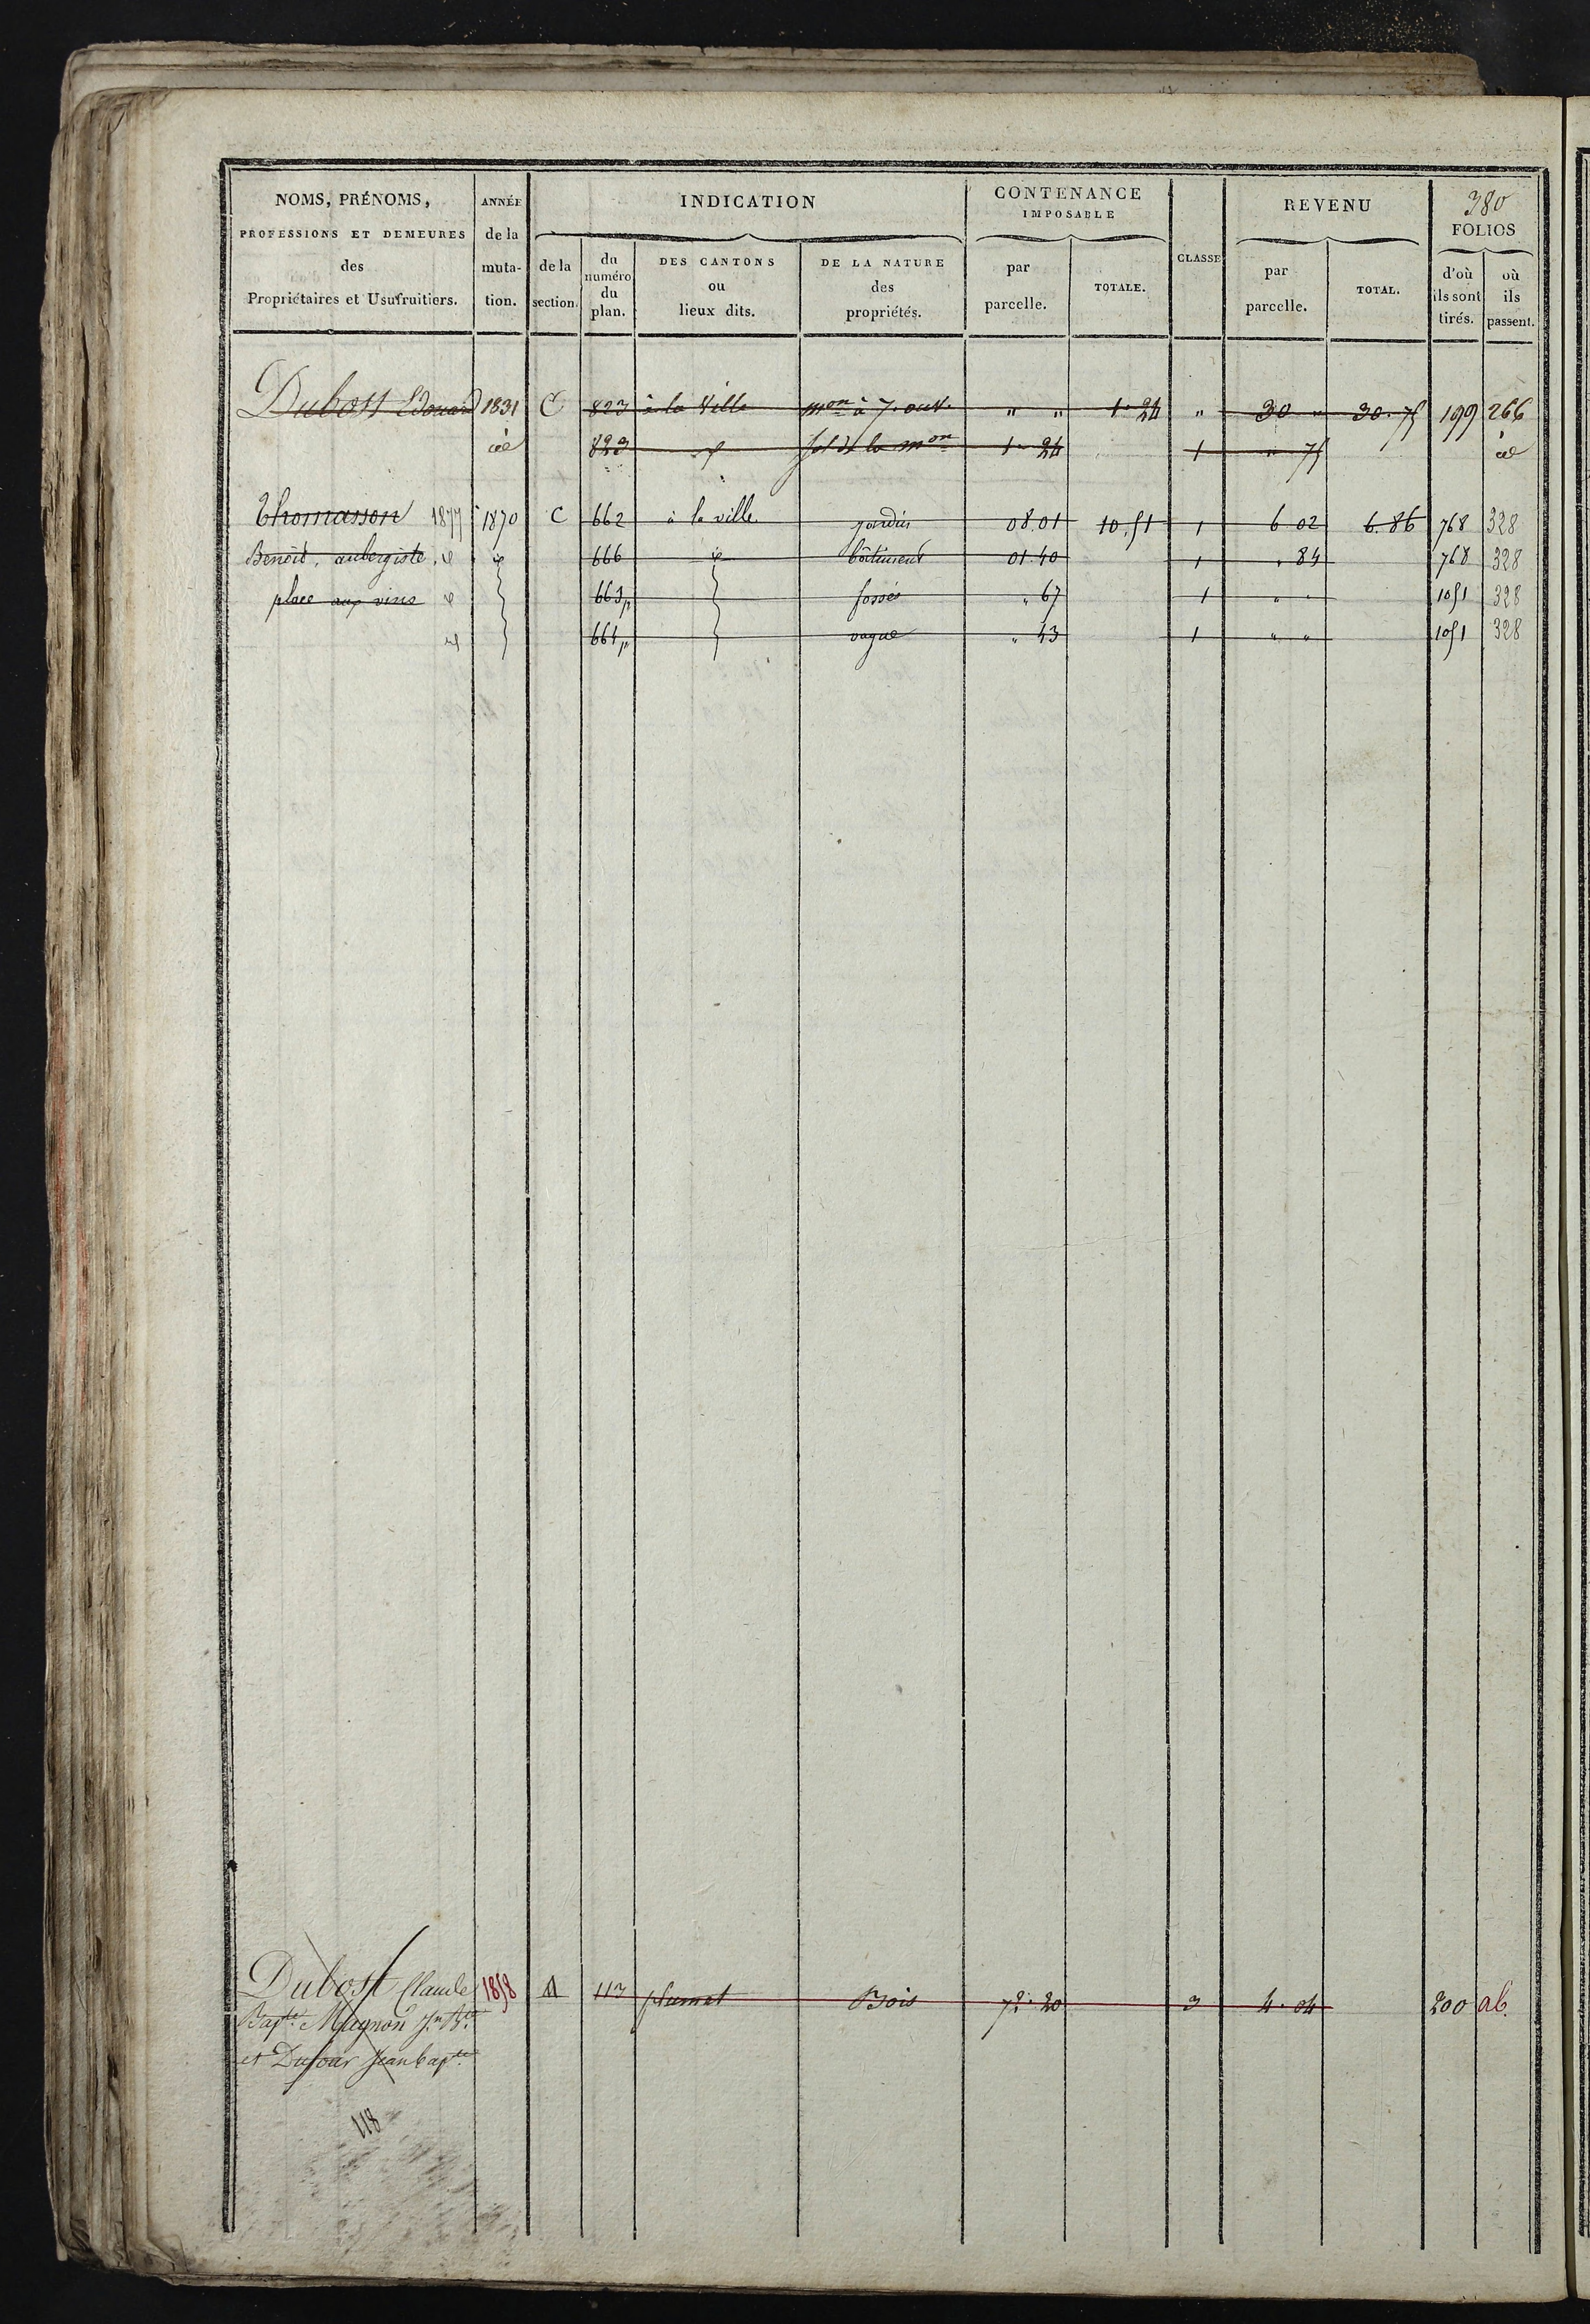 380
NOMS, PRÉNOMS, ANNÉE INDICATION CONTENANCE IMPOSABLE CLASSE REVENU FOLIOS
PROFESSIONS ET DEMEURES des Propriétaires et Usufruitiers. de la mutation. de la section. du numéro du plan. DES CANTONS ou lieux dits. DE LA NATURE des propriétés. par parcelle. TOTALE. par parcelle. TOTAL. d'où ils sont tirés. où ils passent.
Dubost Edouard 1831 C 823 à la Ville mon à 7. ouv. " " 1. 24 " 30 " 30. 75 199 266
id 823 id sol de la mon 1. 24 1 " 75 id
Thomasson 1877 1870 C 662 à la ville jardin 08.01 10.51 1 6 02 6.86 768 328
Benoit, aubergiste, id id 666 id bâtiment 01.40 1 " 84 768 328
place aux vins id 663p fossés " 67 1 " " 1051 328
id 661p vague " 43 1 " " 1051 328
Dubost Claude 1858 A 113 plumet Bois 72. 20 3 4. 04 200 ab.
Bapte. Mugnon Jn Bte.
et Dufour Jean bapte.
118